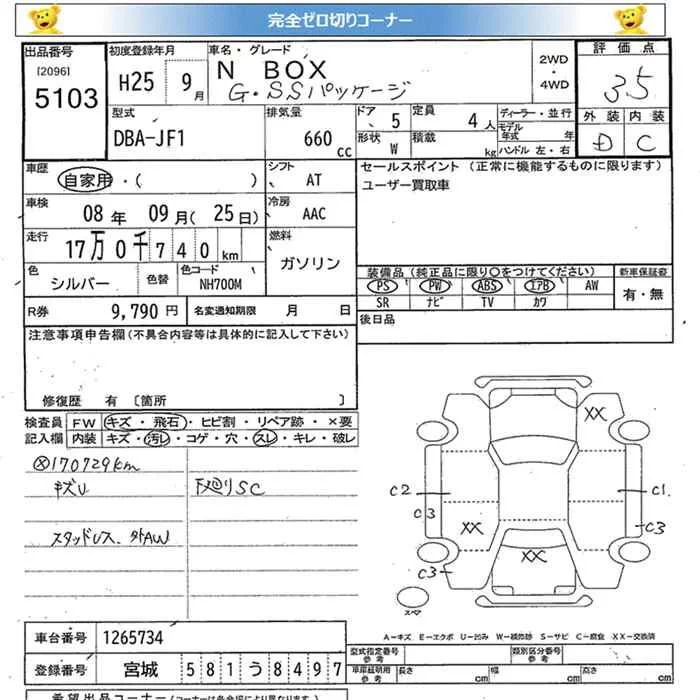 完全ゼロ切りコーナー
出品番号
[2096]
5103
初度登録年月
H25 9月
車名・グレード
N BOX
G・SSパッケージ
2WD
・
4WD
評価点
3.5
外装 内装
D C
型式
DBA-JF1
排気量
660 cc
ドア 5
形状 W
定員 4人
積載 kg
ディーラー・並行
モデル年式 年
ハンドル 左・右
車歴
自家用・( )
シフト
AT
車検
08年 09月(25日)
冷房
AAC
走行
17万0千740km
燃料
ガソリン
色
シルバー
色替
色コード
NH700M
セールスポイント(正常に機能するものに限ります)
ユーザー買取車
装備品(純正品に限り○をつけてください)
新車保証書
PS PW ABS エアB AW
有・無
SR ナビ TV カワ
R券 9,790円
名変通知期限 月 日
後日品
注意事項申告欄(不具合内容等は具体的に記入して下さい)
修復歴 有 [箇所 ]
検査員
記入欄
FW キズ・飛石・ヒビ割・リペア跡・×要
内装 キズ・汚レ・コゲ・穴・スレ・キレ・破レ
ⓧ170729km
キズU 下廻りSC
スタッドレス、外AW
XX
C2
C1
C3
C3
XX
XX
C3
スペア
A−キズ E−エクボ U−凹み W−補修跡 S−サビ C−腐食 XX−交換済
車台番号 1265734
型式指定番号
参考
類別区分番号
参考
登録番号 宮城 581う8497
車庫証明用
参考
長さ cm
幅 cm
高さ cm
希望出品コーナー